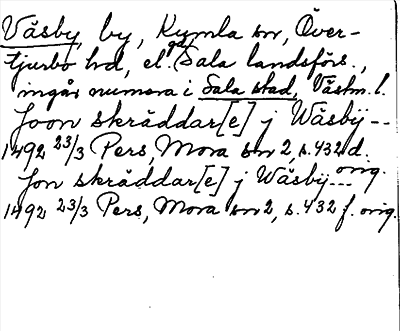 Väsby, by, Kymla sn, Över-
tjurbo hd, el. gd. Sala landsförs.,
ingår numera i Sala stad, Västm. l.
Joon skräddar[e] j Wäsbij --
1492 23/3 Pers, Mora sn 2, s. 432 d. orig.
Jon skräddar[e] j Wäsbij ---
1492 23/3 Pers, Mora sn 2, s. 432 f. orig.